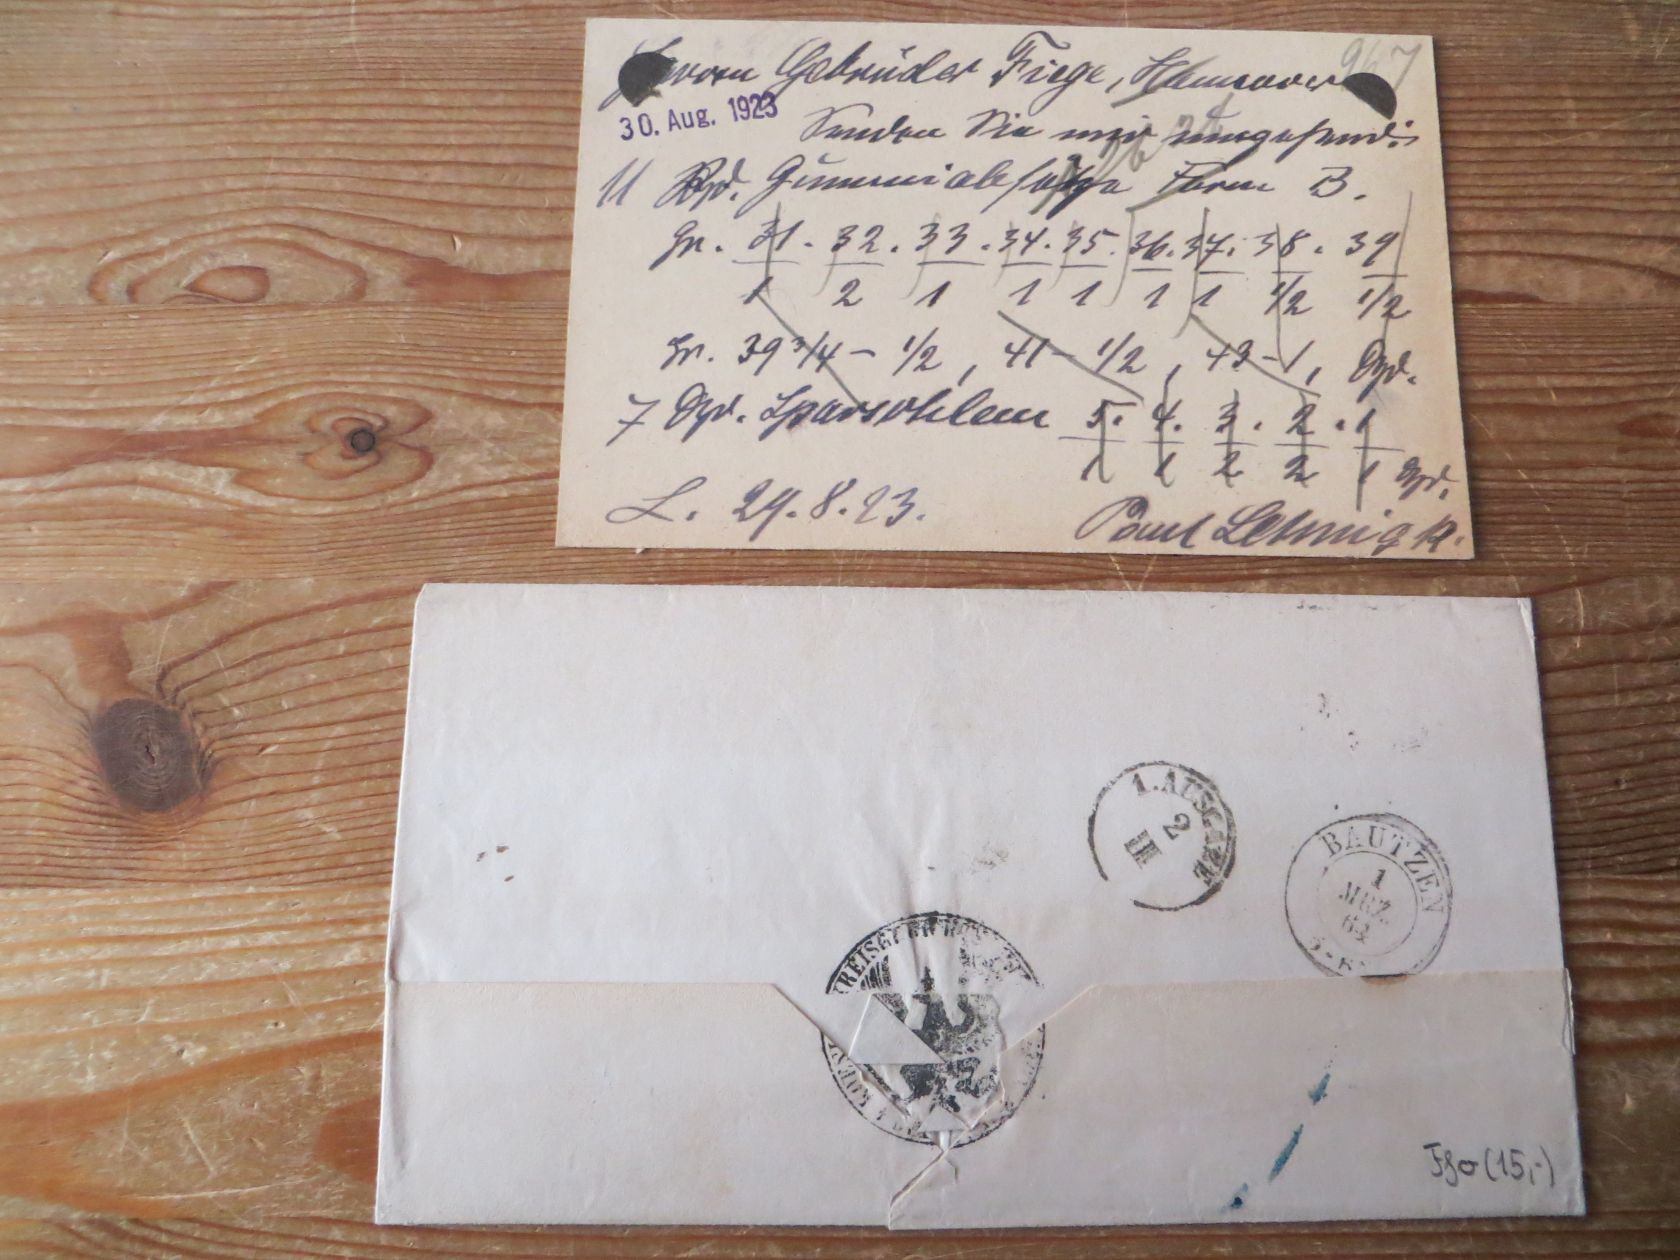 Herren Gebrüder Fiege, Hannover
967
30. Aug. 1923
Senden Sie mir umgehend:
11 Dzd. Gummiabsätze Form B.
Gr. 31. 32. 33. 34. 35. 36. 37. 38. 39
1 2 1 1 1 1 1 1/2 1/2
Gr. 39 3/4 – 1/2, 41 – 1/2, 43 – 1, Dzd.
7 Dzd. Sparsohlen 5. 4. 3. 2. 1
1 1 2 2 1 Dzd.
L. 29.8.23.
Paul
1. AUSGABE
2
III
BAUTZEN
1
MRZ.
(15,-)